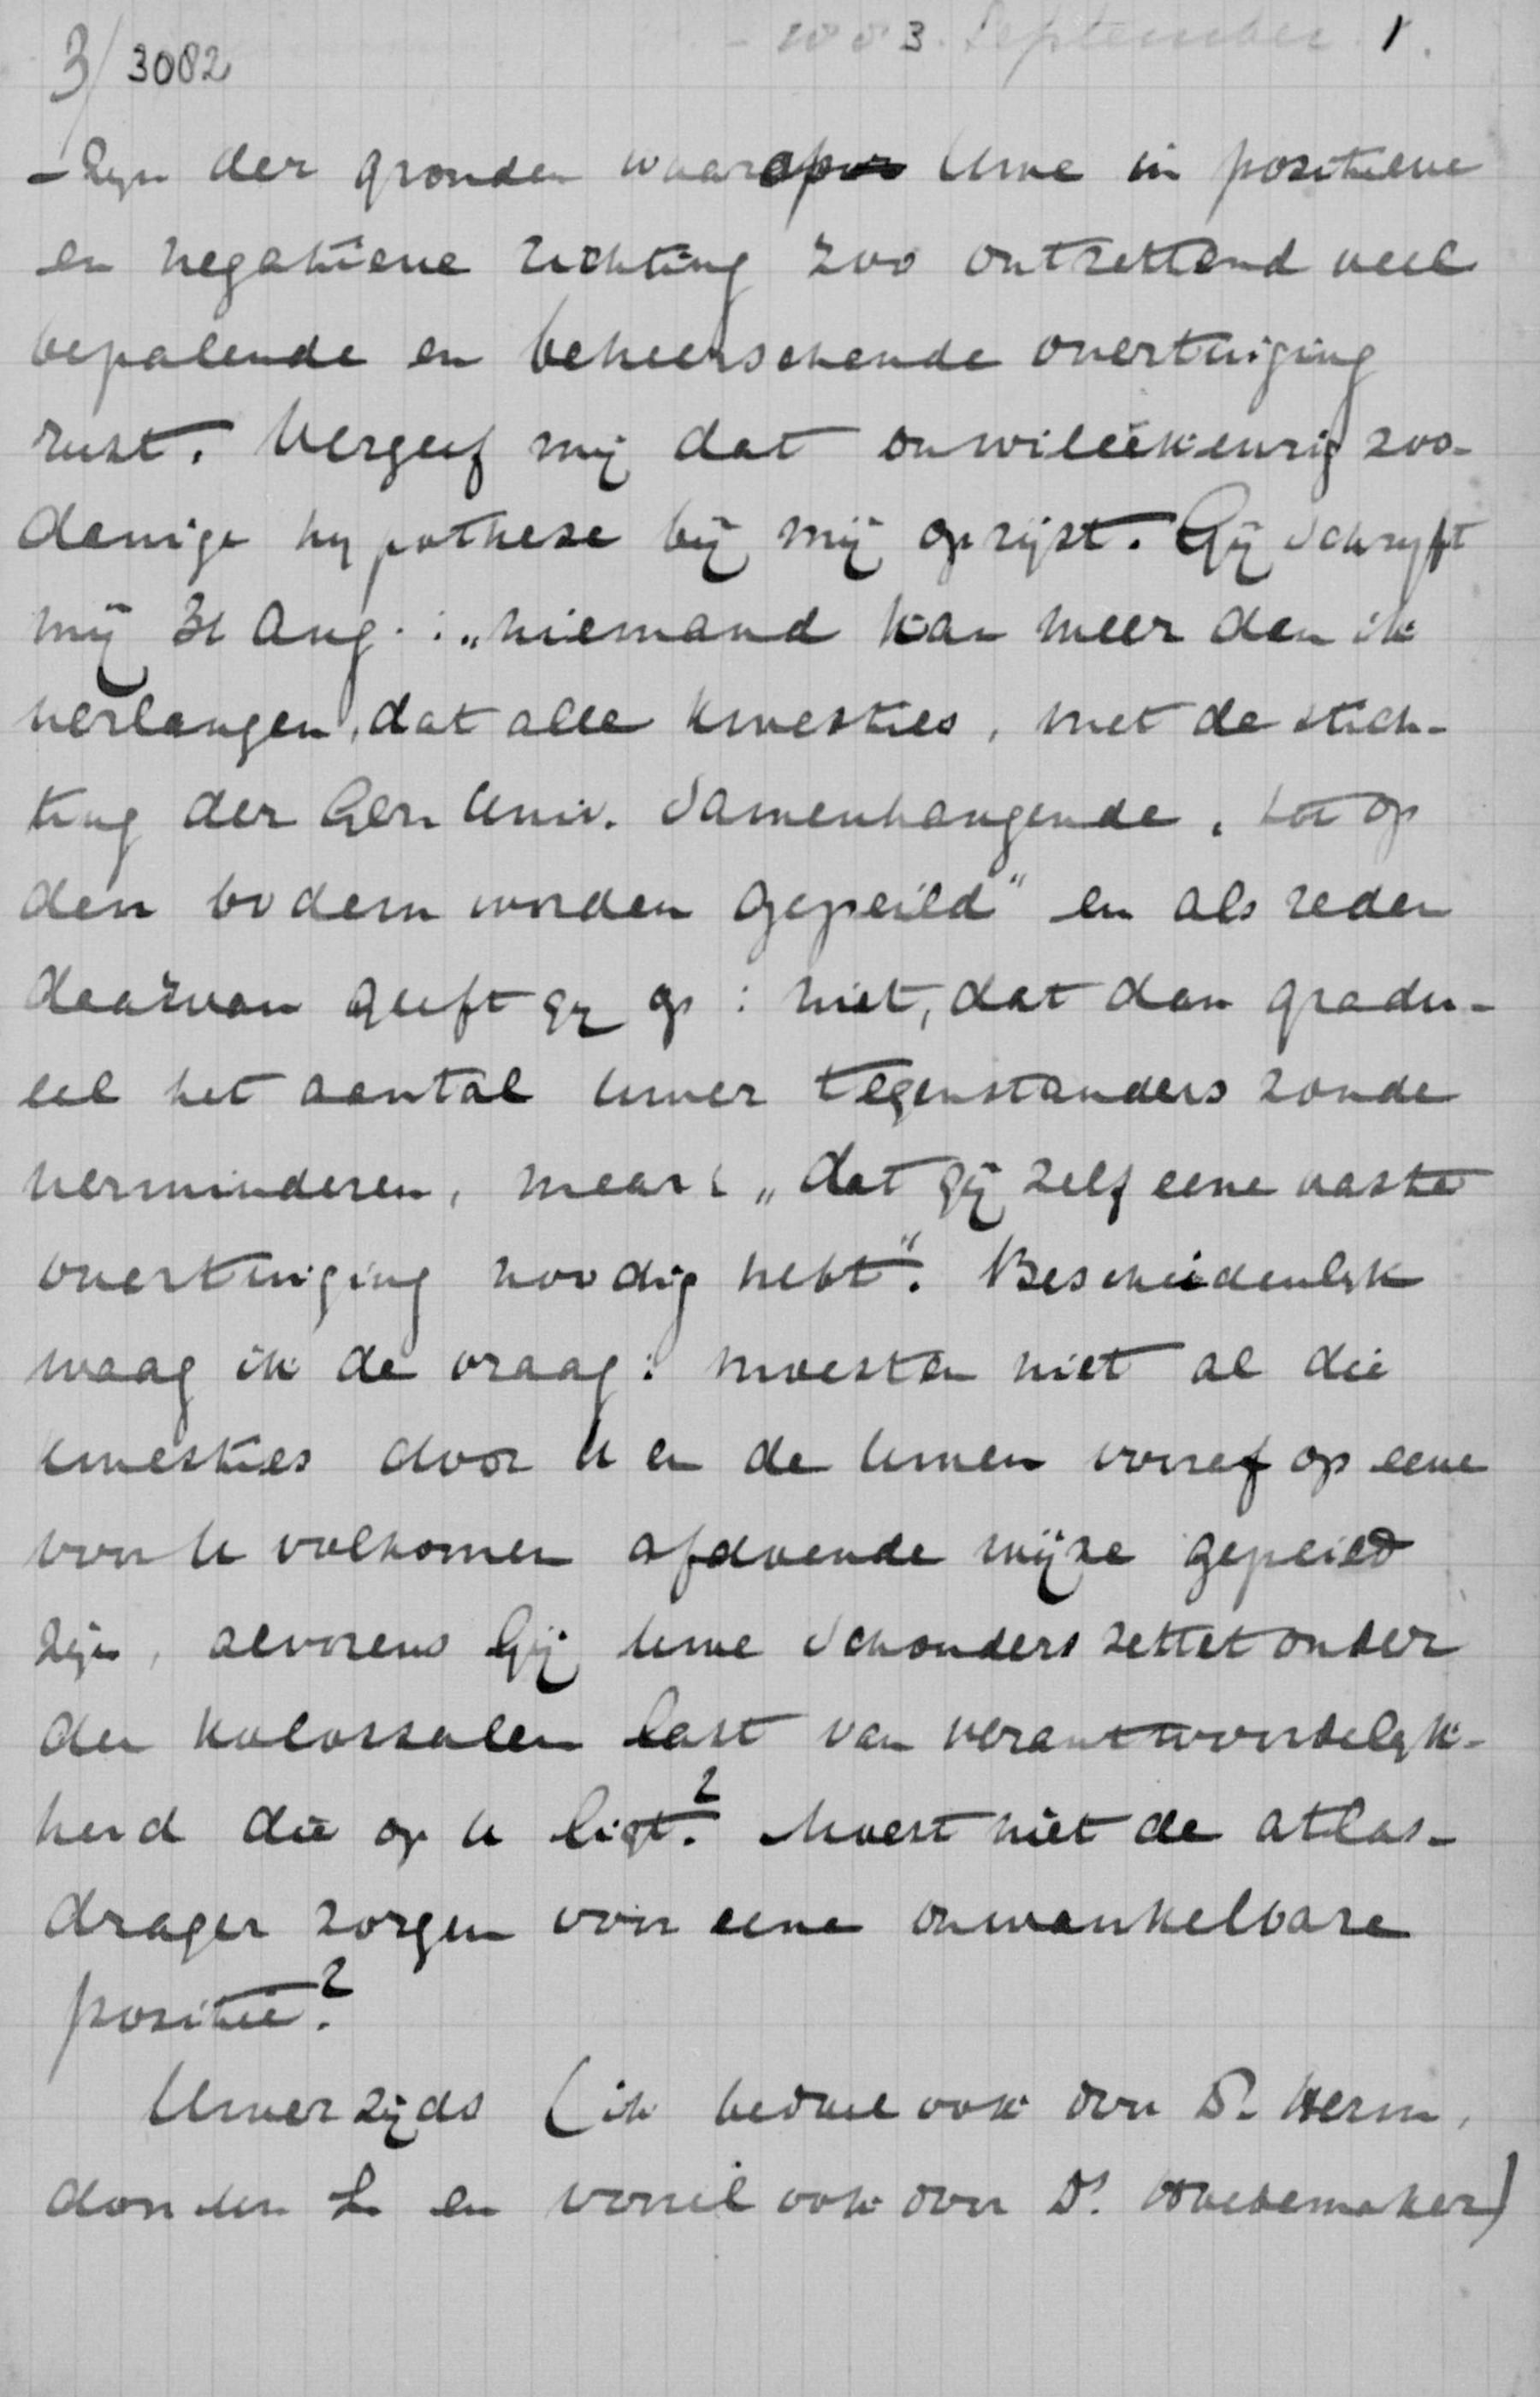 3/ 3082 3. September 1.
- zijn der gronden waarop Uwe in positieve
en negatieve richting zoo ontzettend veel
bepalende en beheerschende overtuiging
rust. Vergeef mij dat onwillekeurig zoo-
danige hypothese bij mij oprijst. Gij schrijft
mij 31 Aug. : „niemand kan meer dan ik
verlangen, dat alle kwesties, met de stich-
ting der Ger. Univ. samenhangende, tot op
den bodem worden gepeild" en als reden
daarvan geeft gij op : niet, dat dan gradu-
eel het aantal Uwer tegenstanders zoude
verminderen, maar : „dat gij zelf eene vaste
overtuiging noodig hebt". Bescheidenlijk
waag ik de vraag : moesten niet al die
kwesties door U en de Uwen vooraf op eene
voor U volkomen afdoende wijze gepeild
zijn, alvorens Gij Uwe schouders zettet onder
den kolossalen last van verantwoordelijk-
heid die op U ligt? Moest niet de atlas-
drager zorgen voor eene onwankelbare
positie?
Uwerzijds (ik bedoel ook door Ds. Herm,
door den L en vooral ook door Ds. Hoedemaker)